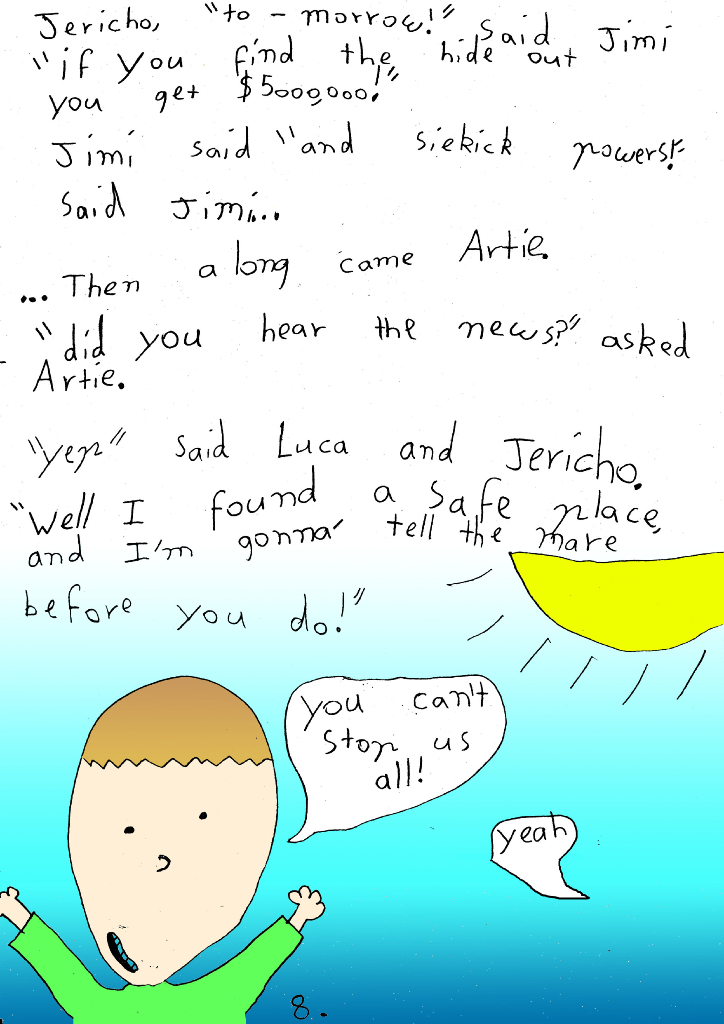 Jericho, "to - morrow!" said Jimi
"if you find the hide out
you get $5000,000!"
Jimi said "and siekick powers!"
said Jimi...
... Then a long came Artie.
"did you hear the news?" asked
Artie.
"yep" said Luca and Jericho.
"Well I found a safe place,
and I'm gonna tell the mare
before you do!"
you can't
stop us
all!
yeah
8.